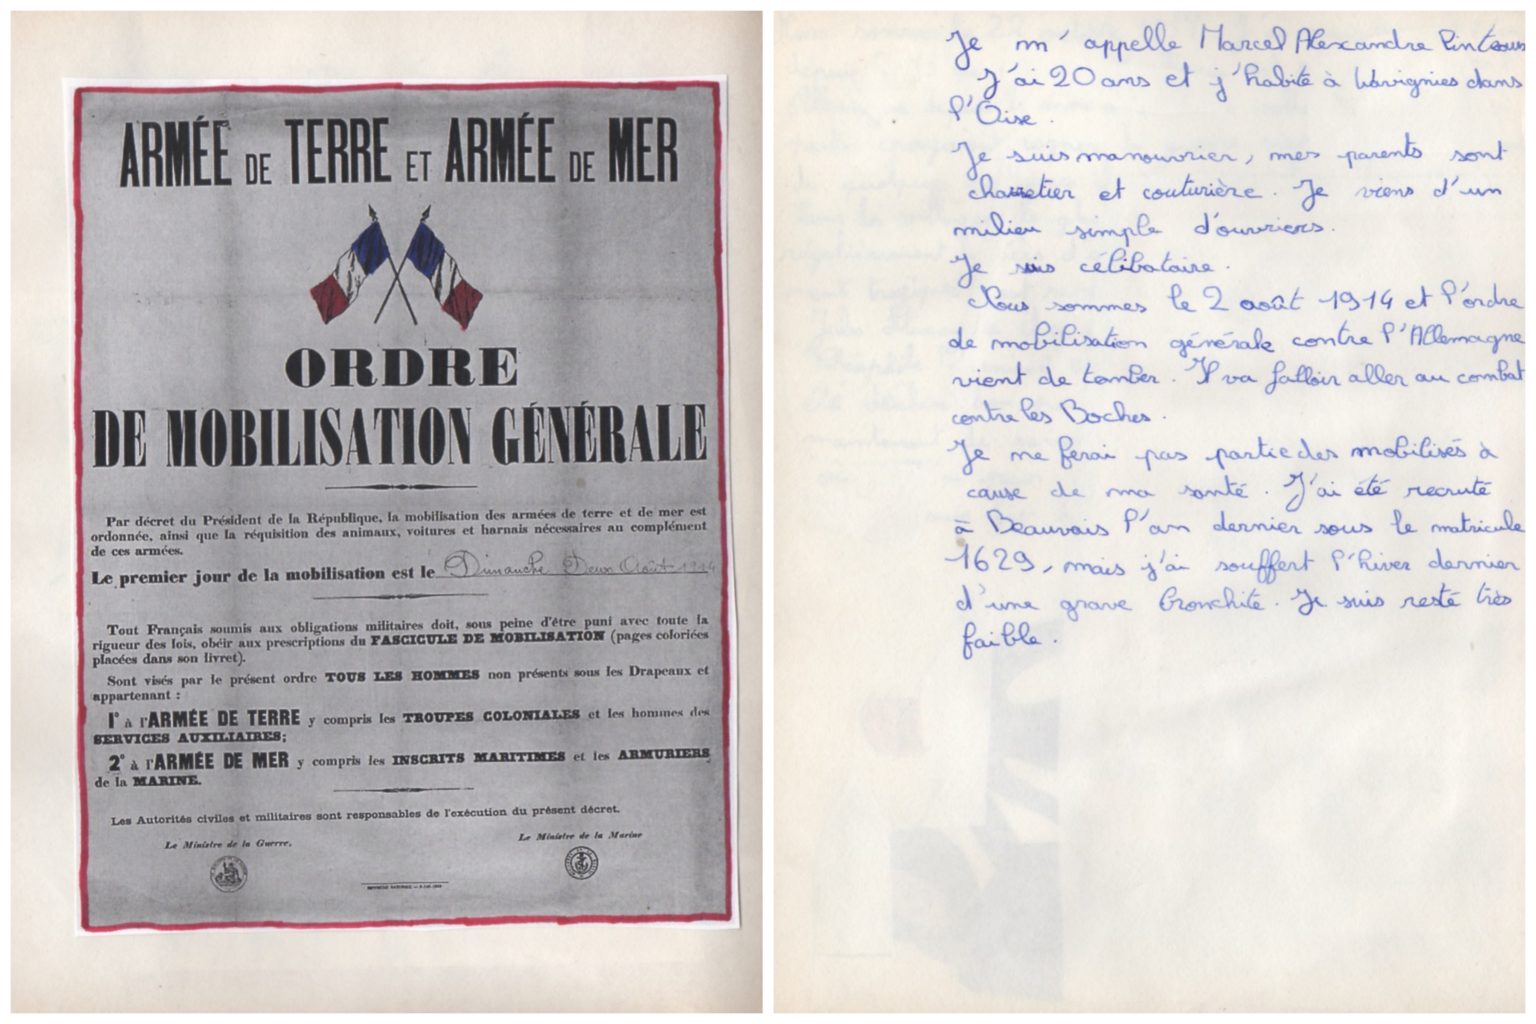 ARMÉE DE TERRE ET ARMÉE DE MER
ORDRE
DE MOBILISATION GÉNÉRALE
Par décret du Président de la République, la mobilisation des armées de terre et de mer est
ordonnée, ainsi que la réquisition des animaux, voitures et harnais nécessaires au complément
de ces armées.
Le premier jour de la mobilisation est le Dimanche Deux Août 1914
Tout Français soumis aux obligations militaires doit, sous peine d'être puni avec toute la
rigueur des lois, obéir aux prescriptions du FASCICULE DE MOBILISATION (pages coloriées
placées dans son livret).
Sont visés par le présent ordre TOUS LES HOMMES non présents sous les Drapeaux et
appartenant :
1° à l'ARMÉE DE TERRE y compris les TROUPES COLONIALES et les hommes des
SERVICES AUXILIAIRES;
2° à l'ARMÉE DE MER y compris les INSCRITS MARITIMES et les ARMURIERS
de la MARINE.
Les Autorités civiles et militaires sont responsables de l'exécution du présent décret.
Le Ministre de la Guerre,
Le Ministre de la Marine
Je m'appelle Marcel Alexandre
J'ai 20 ans et j'habite à Wavignies dans
l'Oise.
Je suis manouvrier, mes parents sont
charretier et couturière. Je viens d'un
milieu simple d'ouvriers.
Je suis célibataire.
Nous sommes le 2 août 1914 et l'ordre
de mobilisation générale contre l'Allemagne
vient de tomber. Il va falloir aller au combat
contre les Boches.
Je ne ferai pas partie des mobilisés à
cause de ma santé. J'ai été recruté
à Beauvais l'an dernier sous le matricule
1629, mais j'ai souffert l'hiver dernier
d'une grave bronchite. Je suis resté très
faible.